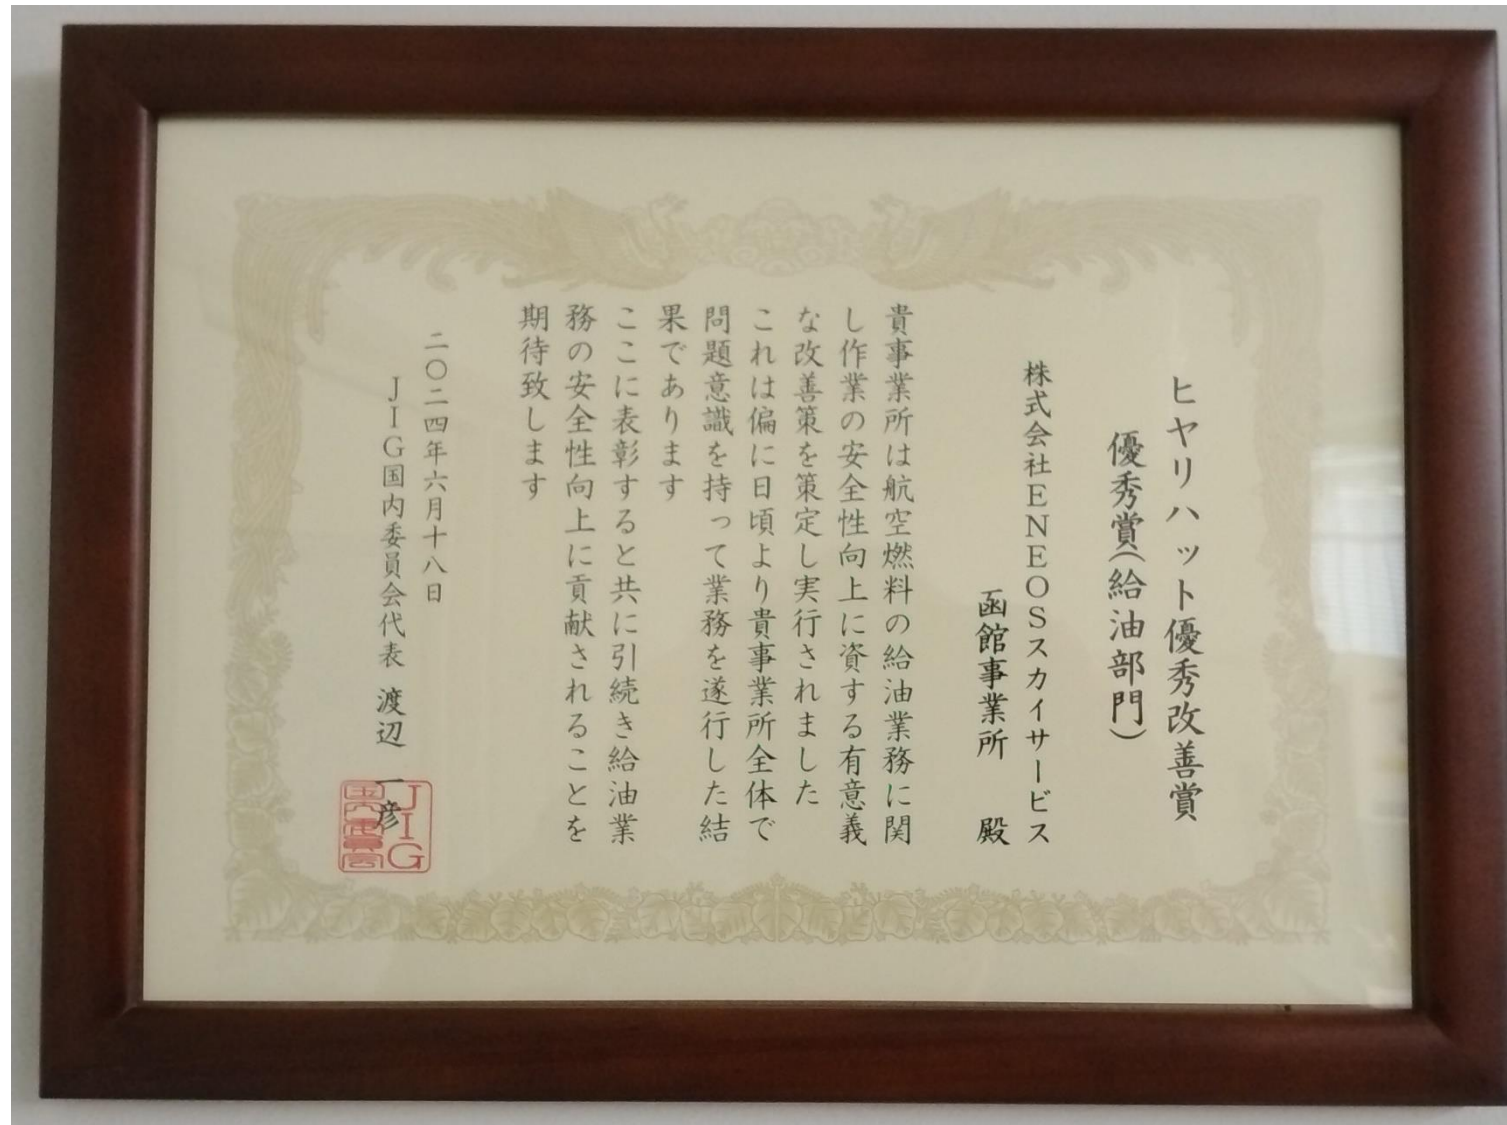 ヒヤリハット優秀改善賞
優秀賞（給油部門）
株式会社ENEOSスカイサービス
函館事業所　殿
貴事業所は航空燃料の給油業務に関
し作業の安全性向上に資する有意義
な改善策を策定し実行されました
これは偏に日頃より貴事業所全体で
問題意識を持って業務を遂行した結
果であります
ここに表彰すると共に引続き給油業
務の安全性向上に貢献されることを
期待致します
二〇二四年六月十八日
JIG国内委員会代表　渡辺　一彦
JIG
国内委員会